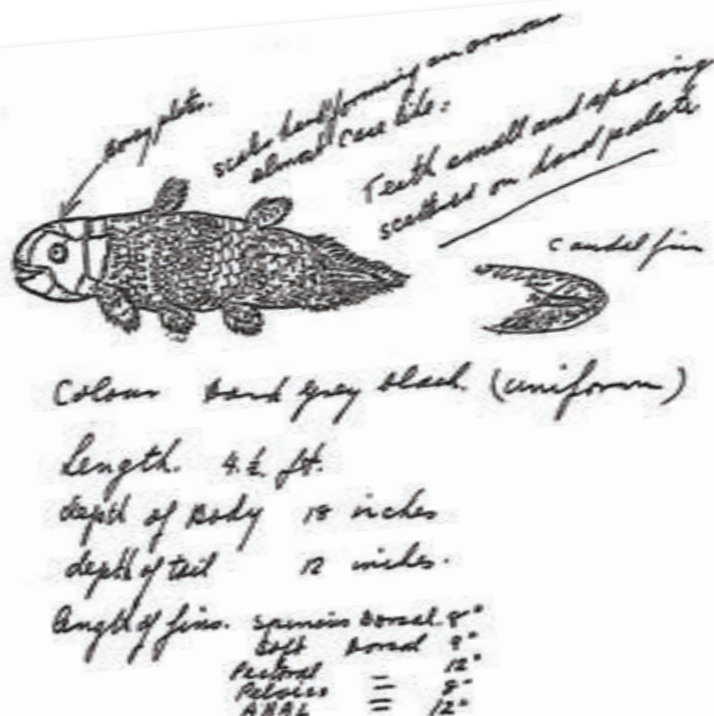 bony plates.
scales hard forming an armour
almost case like:
Teeth small and
scattered on hard palate
Caudal fin
Colour dark grey black. (uniform)
Length. 4.½ ft.
depth of Body 18 inches
depth of tail 12 inches.
length of fins. spinous Dorsal 8"
Soft Dorsal 9"
Pectoral = 12"
Pelvics = 8"
ANAL = 12"